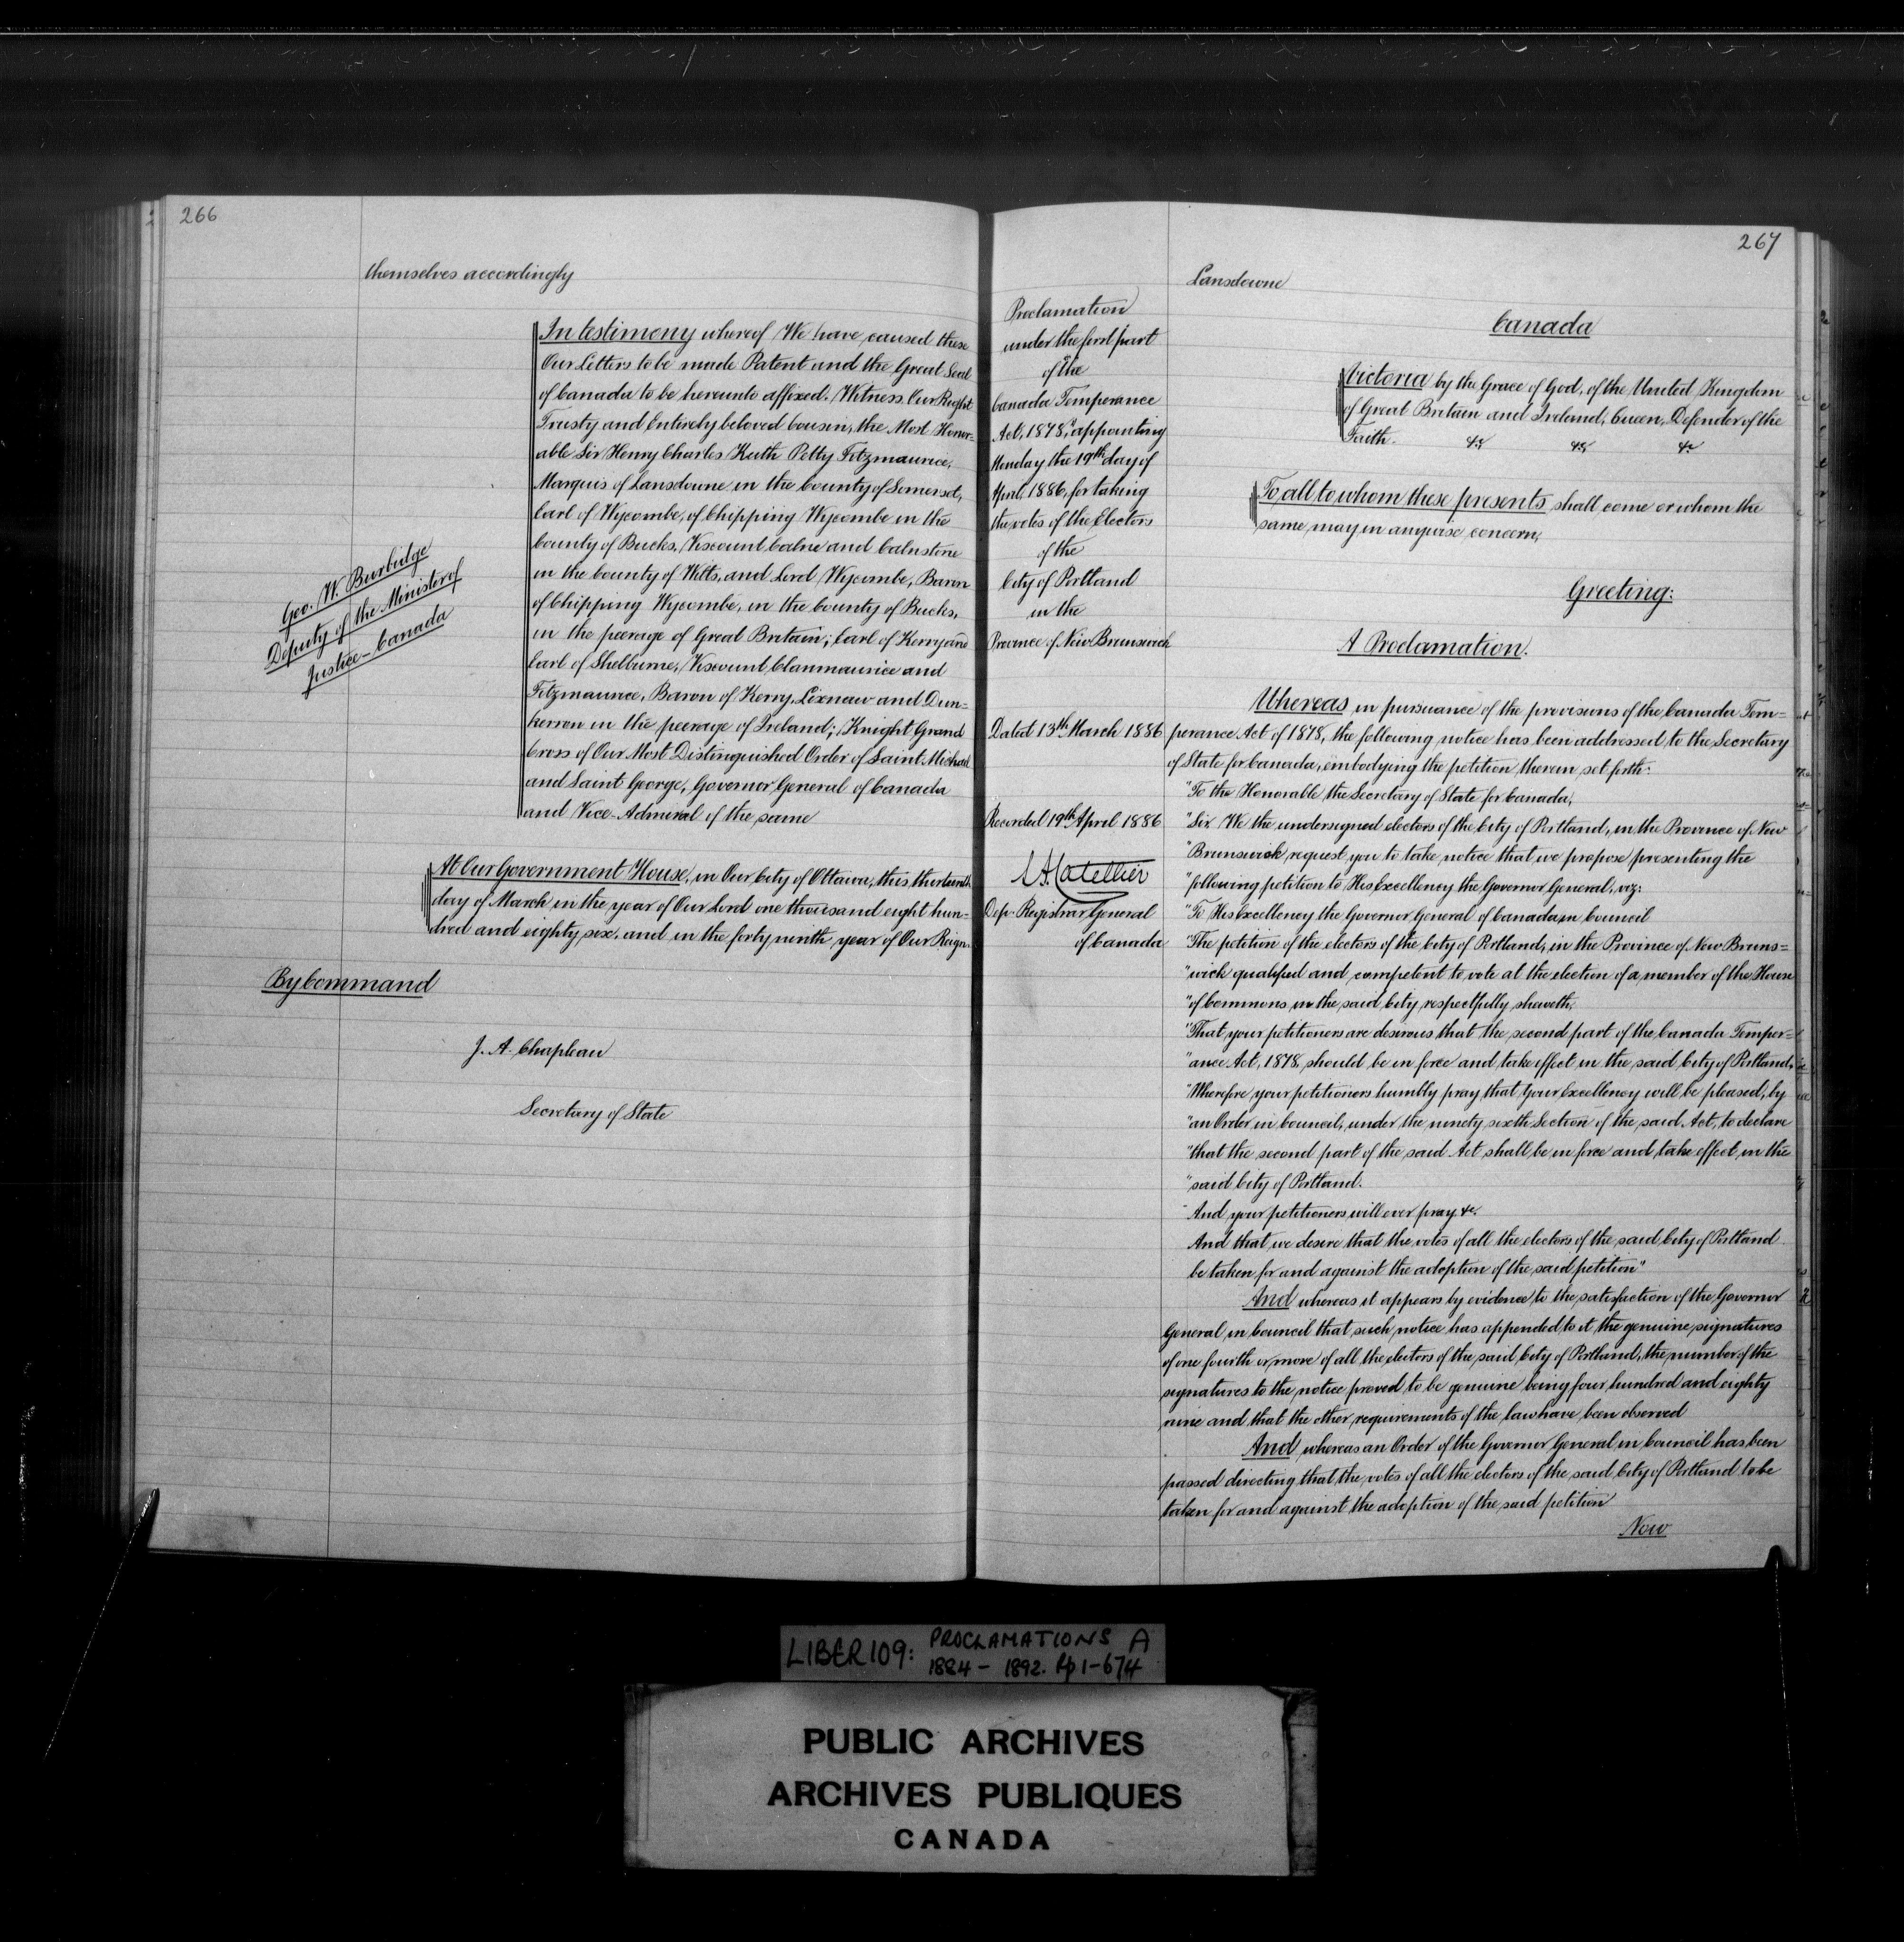 266
themselves accordingly
In testimony whereof We have caused these
Our Letters to be made Patent and the Great Seal
of Canada to be hereunto affixed. Witness, Our Right
Trusty and Entirely beloved Cousin, the Most Honor=
able Sir Henry Charles Keith Petty Fitzmaurice,
Marquis of Lansdowne in the County of Somerset,
Earl of Wycombe, of Chipping Wycombe in the
County of Bucks, Viscount Calne and Calnstone
in the County of Wilts, and Lord Wycombe, Baron
of Chipping Wycombe, in the County of Bucks,
in the peerage of Great Britain; Earl of Kerry and
Earl of Shelburne, Viscount Clanmaurice and
Fitzmaurice, Baron of Kerry, Lixnaw and Dun=
kerron in the peerage of Ireland; Knight Grand
Cross of Our Most Distinguished Order of Saint Michael
and Saint George, Governor General of Canada
and Vice-Admiral of the same
Geo. W. Burbidge
Deputy of the Minister of
Justice - Canada
At Our Government House, in Our City of Ottawa, this thirteenth
day of March in the year of Our Lord one thousand eight hun=
dred and eighty six, and in the forty ninth year of Our Reign.
By Command
J. A. Chapleau
Secretary of State
267
Proclamation
under the first part
of the
Canada Temperance
Act, 1878," appointing
Monday the 19th day of
April, 1886, for taking
the votes of the Electors
of the
City of Portland
in the
Province of New Brunswick
Dated 13th March 1886
Recorded 19th April 1886
Dep. Registrar General
of Canada
Lansdowne
Canada
Victoria by the Grace of God, of the United Kingdom
of Great Britain and Ireland, Queen, Defender of the
Faith. &c &c &c
To all to whom these presents shall come or whom the
same may in anywise concern,
Greeting:
A Proclamation.
Whereas in pursuance of the provisions of the Canada Tem=
perance Act of 1878, the following notice has been addressed to the Secretary
of State for Canada, embodying the petition therein set forth:
"To the Honorable the Secretary of State for Canada,
"Sir. We the undersigned electors of the City of Portland, in the Province of New
"Brunswick, request you to take notice that we propose presenting the
"following petition to His Excellency the Governor General, viz:
"To His Excellency the Governor General of Canada in Council
"The petition of the electors of the City of Portland, in the Province of New Bruns=
"wick qualified and competent to vote at the election of a member of the House
"of Commons in the said City respectfully sheweth,
"That your petitioners are desirous that the second part of the Canada Temper=
"ance Act, 1878, should be in force and take effect in the said City of Portland,
"Wherefore your petitioners humbly pray that Your Excellency will be pleased, by
"an Order in Council, under the ninety sixth Section of the said Act, to declare
"that the second part of the said Act shall be in force and take effect in the
"said City of Portland.
"And your petitioners will ever pray &c.
And that we desire that the votes of all the electors of the said City of Portland
be taken for and against the adoption of the said petition"
And whereas it appears by evidence to the satisfaction of the Governor
General in Council that such notice has appended to it the genuine signatures
of one fourth or more of all the electors of the said City of Portland, the number of the
signatures to the notice proved to be genuine being four hundred and eighty
nine and that the other requirements of the law have been observed
And whereas an Order of the Governor General in Council has been
passed directing that the votes of all the electors of the said City of Portland to be
taken for and against the adoption of the said petition
Now
LIBER 109: PROCLAMATIONS A
1884 - 1892. Pp 1-674
PUBLIC ARCHIVES
ARCHIVES PUBLIQUES
CANADA